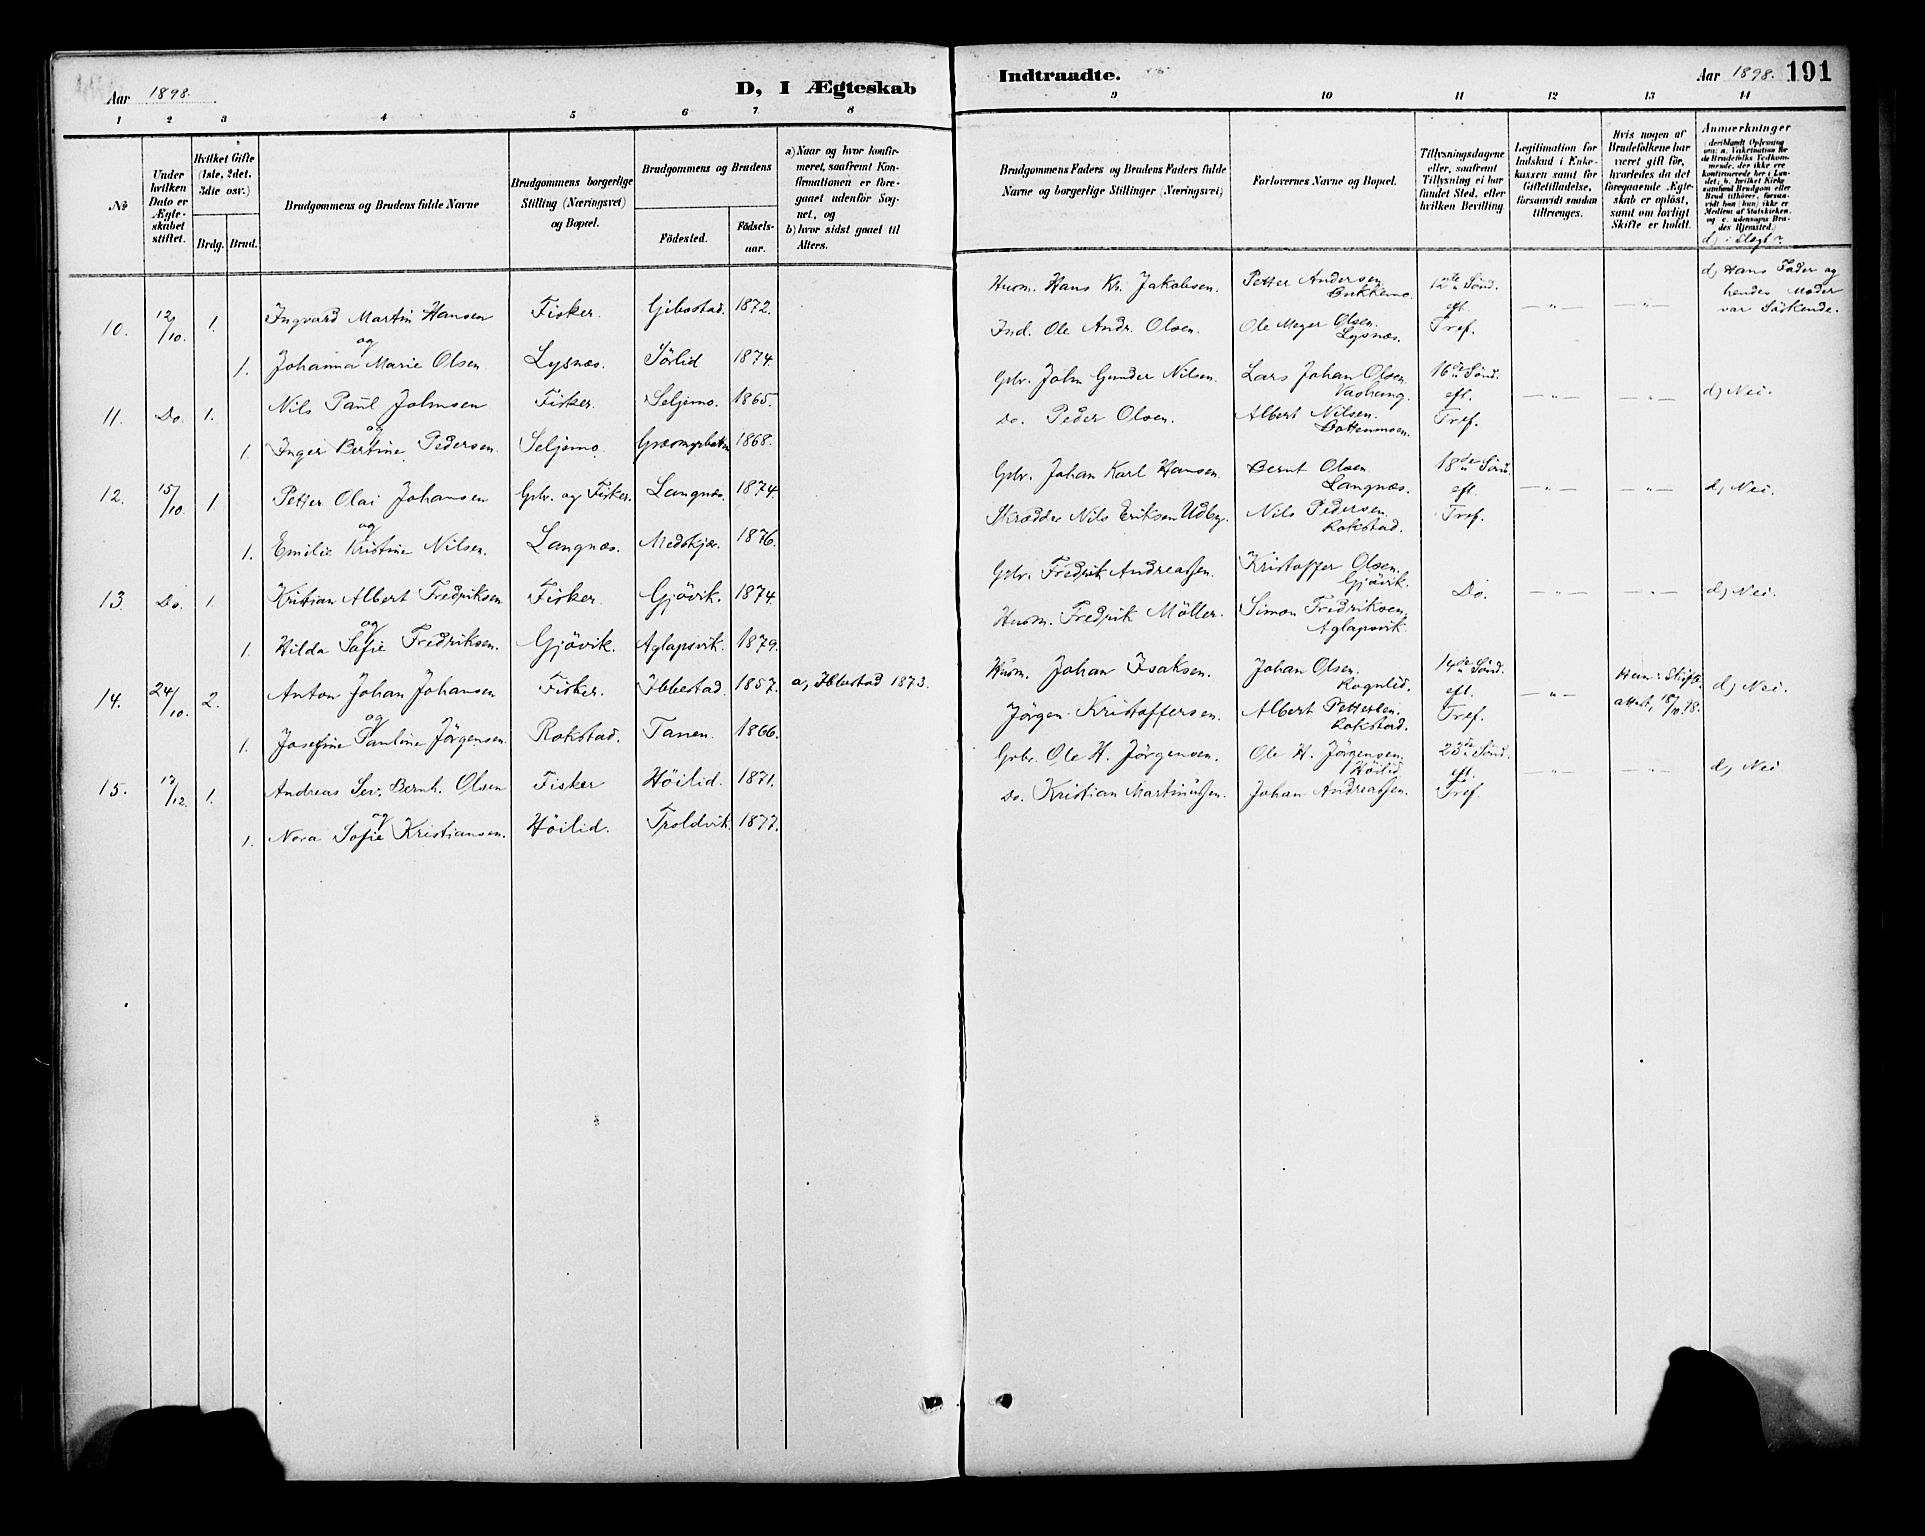 Aar 1898.
D, I Ægteskab
Indtraadte.
Aar 1898. 191
1 2 3 4 5 6 7 8 9 10 11 12 13 14
No
Under hvilken Dato er Ægteskabet stiftet.
Hvilket Gifte (1ste, 2det, 3die osv.)
Brdg. Brud.
Brudgommens og Brudens fulde Navne
Brudgommens borgerlige Stilling (Næringsvei) og Bopæl.
Brudgommens og Brudens
Födested.
Födsels-aar.
a) Naar og hvor konfirmeret, saafremt Konfirmationen er foregaaet udenfor Sognet, og
b) hvor sidst gaaet til Alters.
Brudgommens Faders og Brudens Faders fulde Navne og borgerlige Stillinger (Næringsvei)
Forlovernes Navne og Bopæl.
Tillysningsdagene eller, saafremt Tillysning ei har fundet Sted, efter hvilken Bevilling
Legitimation for Indskud i Enkekassen samt for Giftetilladelse, forsaavidt saadan tiltrænges.
Hvis nogen af Brudefolkene har været gift för, hvorledes da det foregaaende Ægteskab er oplöst, samt om lovligt Skifte er holdt.
Anmerkninger
d) i Slægt?
10. 12/10. 1. Ingvard Martin Hansen Fisker. Gibostad. 1872. Husm. Hans Kr. Jakobsen. Petter Andersen Bukkemo. 12te Sönd. eft. Tref. — " — — " — d) Hans Fader og hendes Moder var Söskende.
og
1. Johanna Marie Olsen Lysnæs. Sörlid 1874. Ind. Ole Andr. Olsen. Ole Meyer Olsen. Lysnæs.
11. Do. 1. Nils Paul Johnsen Fisker. Seljemo. 1865. Gbr. John Gunder Nilsen. Lars Johan Olsen Vashaug. 16de Sönd. eft. Tref. — " — — " — d) Nei.
og
1. Inger Bertine Pedersen. Seljemo. 1868. Do. Peder Olsen. Albert Nilsen. Bottenmoen.
12. 15/10. 1. Petter Olai Johansen Gbr. og Fisker. Langnæs. 1874. Gbr. Johan Karl Hansen. Bernt Olsen Langnæs. 18de Sönd. eft. Tref. — " — — " — d) Nei.
og
1. Emilie Kristine Nilsen. Langnæs. Medskjær. 1876. Skrædder Nils Eriksen Udby. Nils Pedersen Rokstad.
13. Do. 1. Kristian Albert Fredriksen Fisker. Gjövik. 1874. Gbr. Fredrik Andreassen. Kristoffer Olsen. Gjövik. Do. — " — — " — d) Nei.
og
1. Hilda Sofie Fredriksen. Gjövik. Aglapsvik. 1879. Husm. Fredrik Möller. Simon Fredriksen, Aglapsvik.
14. 24/10. 2. Anton Johan Johansen Fisker. Ibbestad. 1857. a, Ibbestad 1873. Husm. Johan Isaksen. Johan Olsen Rognlid. 14de Sönd. eft. Tref. — " — attest, 18/10.98. d) Nei.
og
1. Josefine Pauline Jörgensen. Rokstad. Tanen. 1866. Jörgen Kristoffersen. Albert Pettersen. Rokstad.
15. 17/12. 1. Andreas Sev. Bernh. Olsen Fisker Höilid. 1871. Gbr. Ole H. Jörgensen. Ole H. Jörgensen Höilid. 23de Sönd. eft. Tref. — " — — " — d) Nei
og
1. Nora Sofie Kristiansen. Höilid. Troldvik. 1877. Do. Kristian Martinussen. Johan Andreassen.